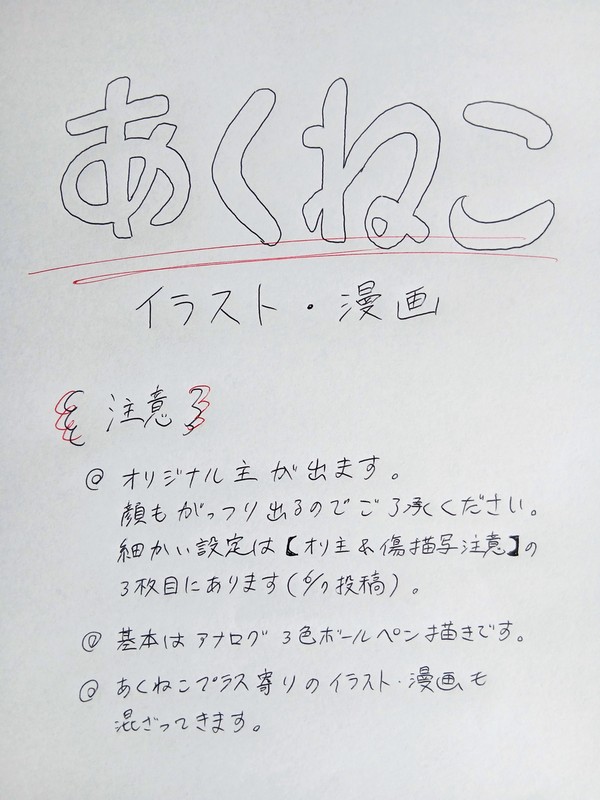 あくねこ
イラスト・漫画
{注意}
@ オリジナル主が出ます。
顔もがっつり出るのでご了承ください。
細かい設定は【オリ主&傷描写注意】の
3枚目にあります(6/7投稿)。
@ 基本はアナログ3色ボールペン描きです。
@ あくねこプラス寄りのイラスト・漫画も
混ざってきます。